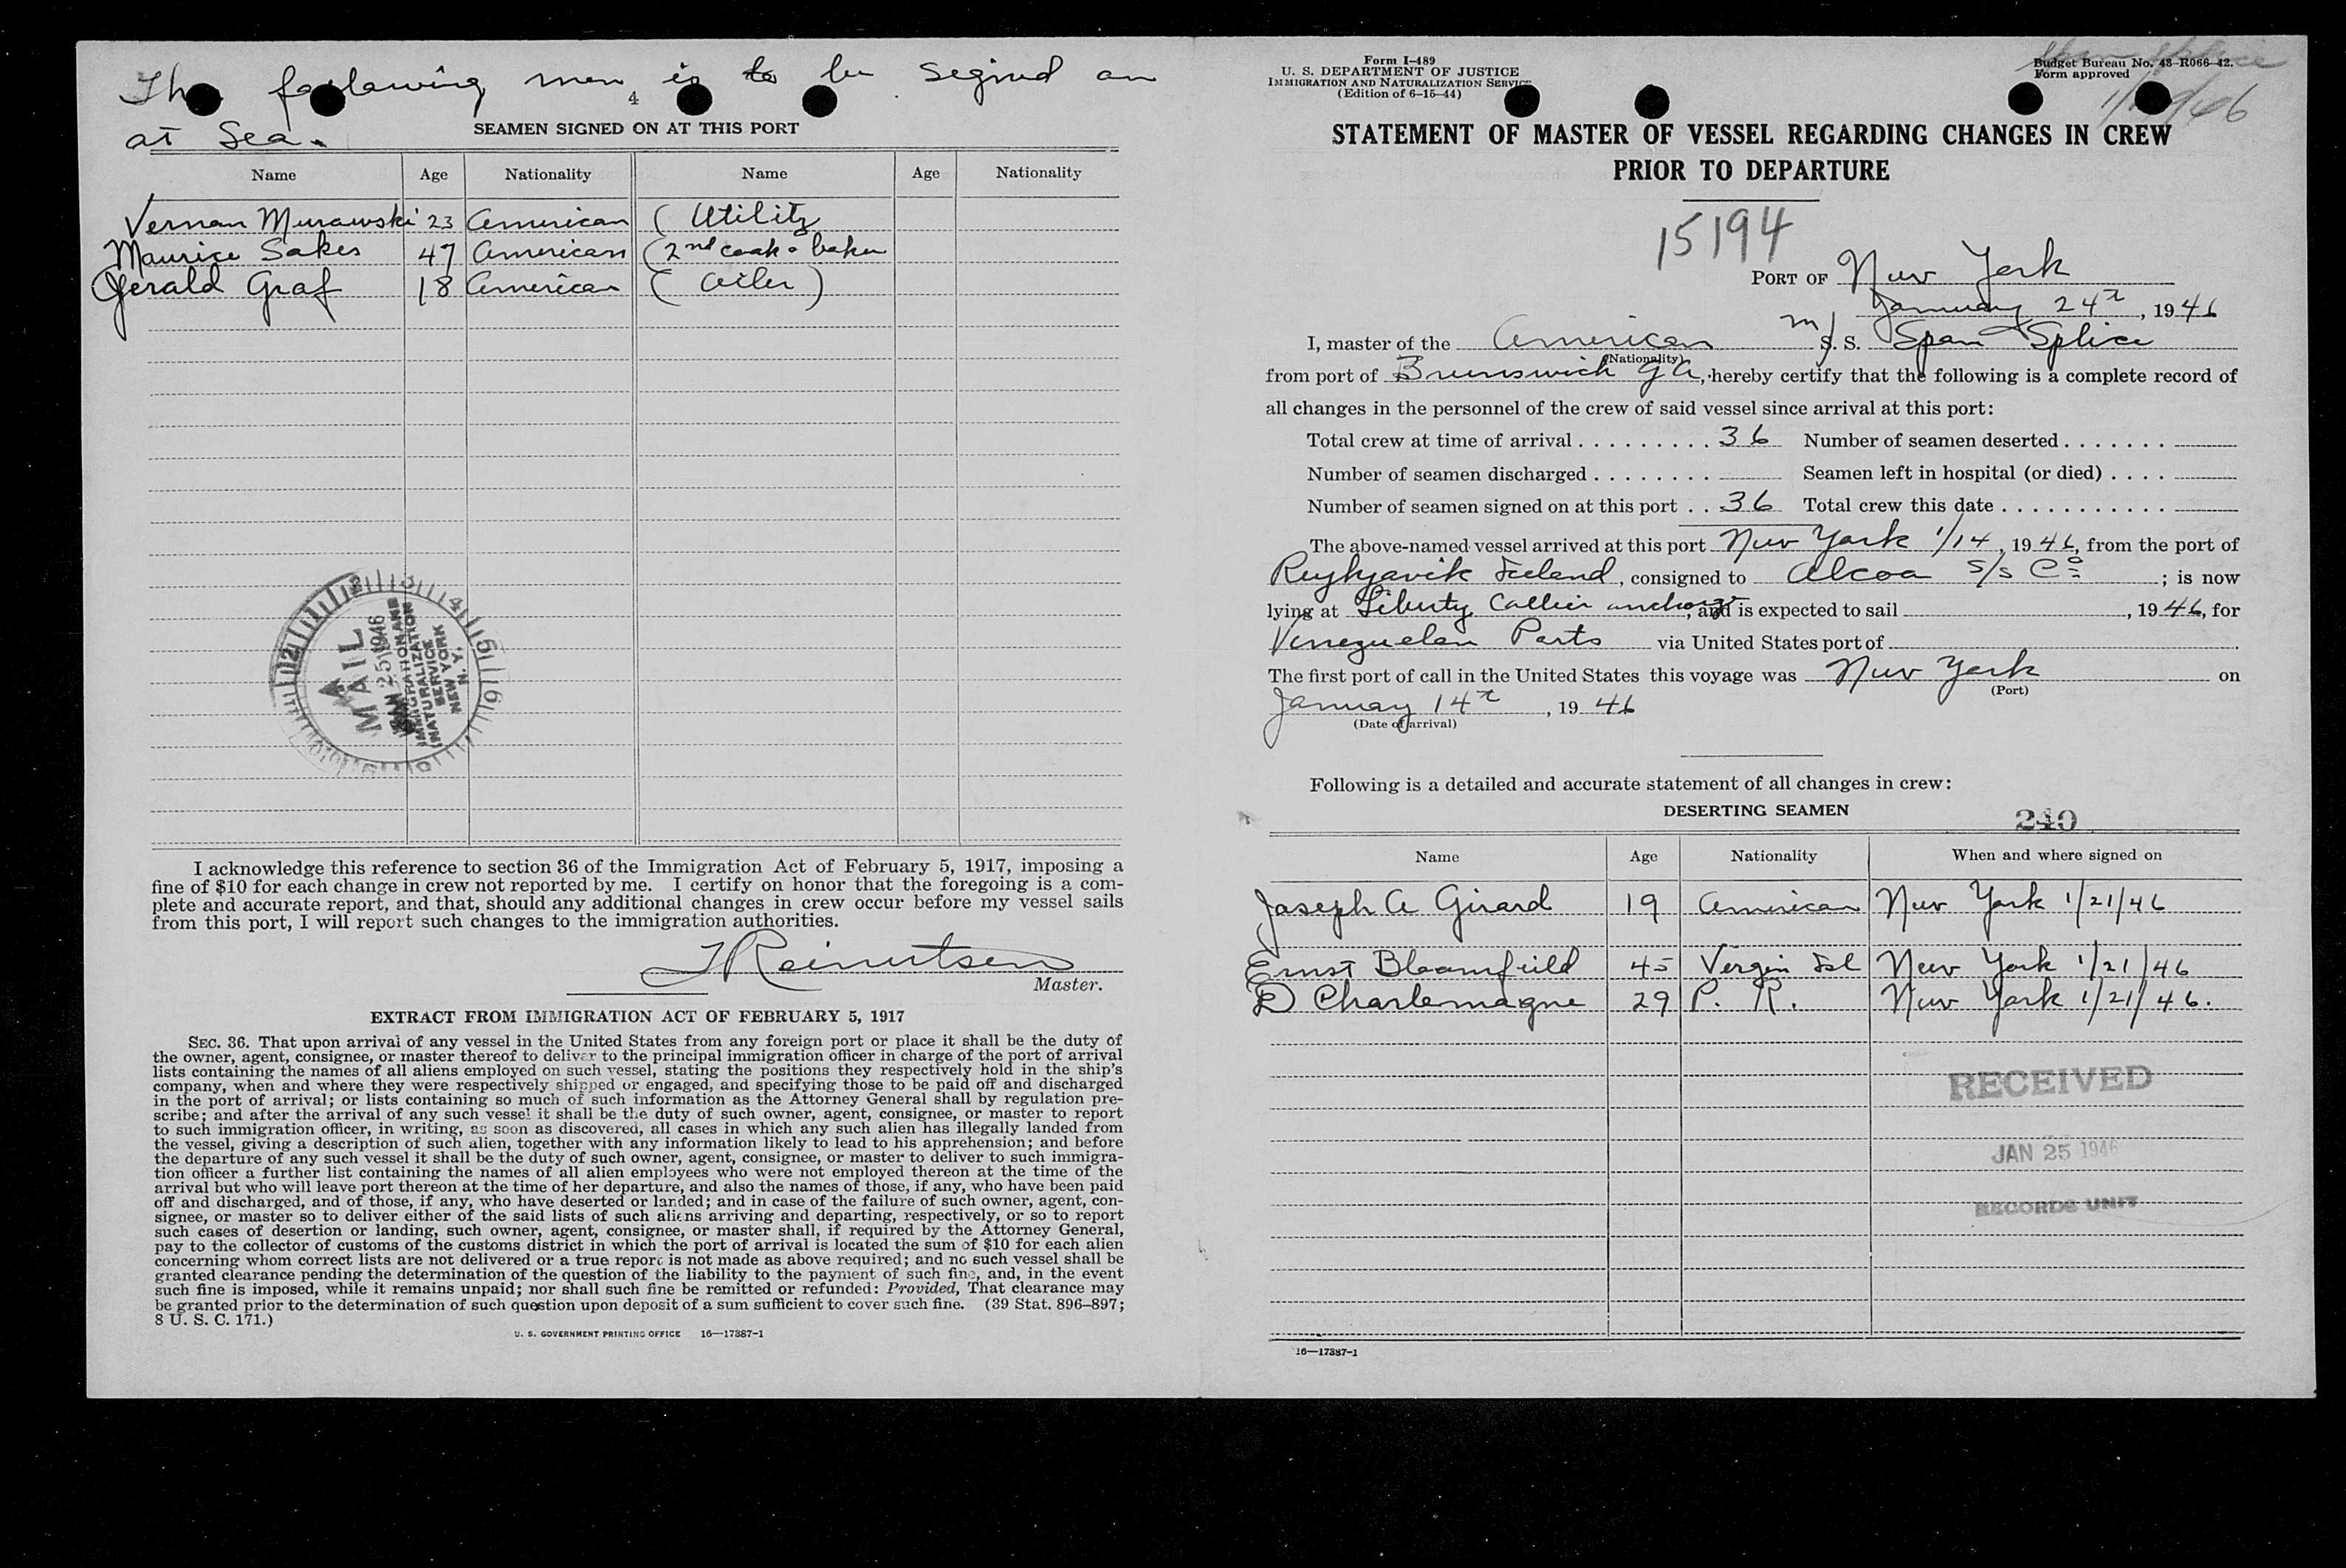 The following men is to be segined on
4
at Sea.
SEAMEN SIGNED ON AT THIS PORT
Name Age Nationality Name Age Nationality
Vernan Murawski 23 American ( Utility
Maurice Sakes 47 American ( 2nd cook & baker
Gerald Graf 18 American ( Oiler )
MAIL
JAN 25 1946
IMMIGRATION AND
NATURALIZATION
SERVICE
NEW YORK
N. Y.
I acknowledge this reference to section 36 of the Immigration Act of February 5, 1917, imposing a
fine of $10 for each change in crew not reported by me. I certify on honor that the foregoing is a com-
plete and accurate report, and that, should any additional changes in crew occur before my vessel sails
from this port, I will report such changes to the immigration authorities.
T Reinertsen
Master.
EXTRACT FROM IMMIGRATION ACT OF FEBRUARY 5, 1917
SEC. 36. That upon arrival of any vessel in the United States from any foreign port or place it shall be the duty of
the owner, agent, consignee, or master thereof to deliver to the principal immigration officer in charge of the port of arrival
lists containing the names of all aliens employed on such vessel, stating the positions they respectively hold in the ship's
company, when and where they were respectively shipped or engaged, and specifying those to be paid off and discharged
in the port of arrival; or lists containing so much of such information as the Attorney General shall by regulation pre-
scribe; and after the arrival of any such vessel it shall be the duty of such owner, agent, consignee, or master to report
to such immigration officer, in writing, as soon as discovered, all cases in which any such alien has illegally landed from
the vessel, giving a description of such alien, together with any information likely to lead to his apprehension; and before
the departure of any such vessel it shall be the duty of such owner, agent, consignee, or master to deliver to such immigra-
tion officer a further list containing the names of all alien employees who were not employed thereon at the time of the
arrival but who will leave port thereon at the time of her departure, and also the names of those, if any, who have been paid
off and discharged, and of those, if any, who have deserted or landed; and in case of the failure of such owner, agent, con-
signee, or master so to deliver either of the said lists of such aliens arriving and departing, respectively, or so to report
such cases of desertion or landing, such owner, agent, consignee, or master shall, if required by the Attorney General,
pay to the collector of customs of the customs district in which the port of arrival is located the sum of $10 for each alien
concerning whom correct lists are not delivered or a true report is not made as above required; and no such vessel shall be
granted clearance pending the determination of the question of the liability to the payment of such fine, and, in the event
such fine is imposed, while it remains unpaid; nor shall such fine be remitted or refunded: Provided, That clearance may
be granted prior to the determination of such question upon deposit of a sum sufficient to cover such fine. (39 Stat. 896–897;
8 U. S. C. 171.)
U. S. GOVERNMENT PRINTING OFFICE 16—17387-1
Form I–489
U. S. DEPARTMENT OF JUSTICE
IMMIGRATION AND NATURALIZATION SERVICE
(Edition of 6–15–44)
Budget Bureau No. 43–R066–42.
Form approved
STATEMENT OF MASTER OF VESSEL REGARDING CHANGES IN CREW
PRIOR TO DEPARTURE
15194
PORT OF New York
January 24th, 1946
I, master of the American m/ S. S. Span Splice
(Nationality)
from port of Brunswick GA, hereby certify that the following is a complete record of
all changes in the personnel of the crew of said vessel since arrival at this port:
Total crew at time of arrival . . . . . . . . . 36 Number of seamen deserted . . . . . . .
Number of seamen discharged . . . . . . . . Seamen left in hospital (or died) . . . .
Number of seamen signed on at this port . . 36 Total crew this date . . . . . . . . . . .
The above-named vessel arrived at this port New York 1/14, 1946, from the port of
Reykjavik Iceland, consigned to Alcoa S/S Co; is now
lying at Liberty Collier anchorage, and is expected to sail , 1946, for
Venezuelan Ports via United States port of
The first port of call in the United States this voyage was New York on
(Port)
January 14th, 1946
(Date of arrival)
Following is a detailed and accurate statement of all changes in crew:
DESERTING SEAMEN
240
Name Age Nationality When and where signed on
Joseph A Girard 19 American New York 1/21/46
Ernst Bloomfield 45 Vergin Isl New York 1/21/46
D Charlemagne 29 P. R. New York 1/21/46.
RECEIVED
JAN 25 1946
RECORDS UNIT
16—17387-1